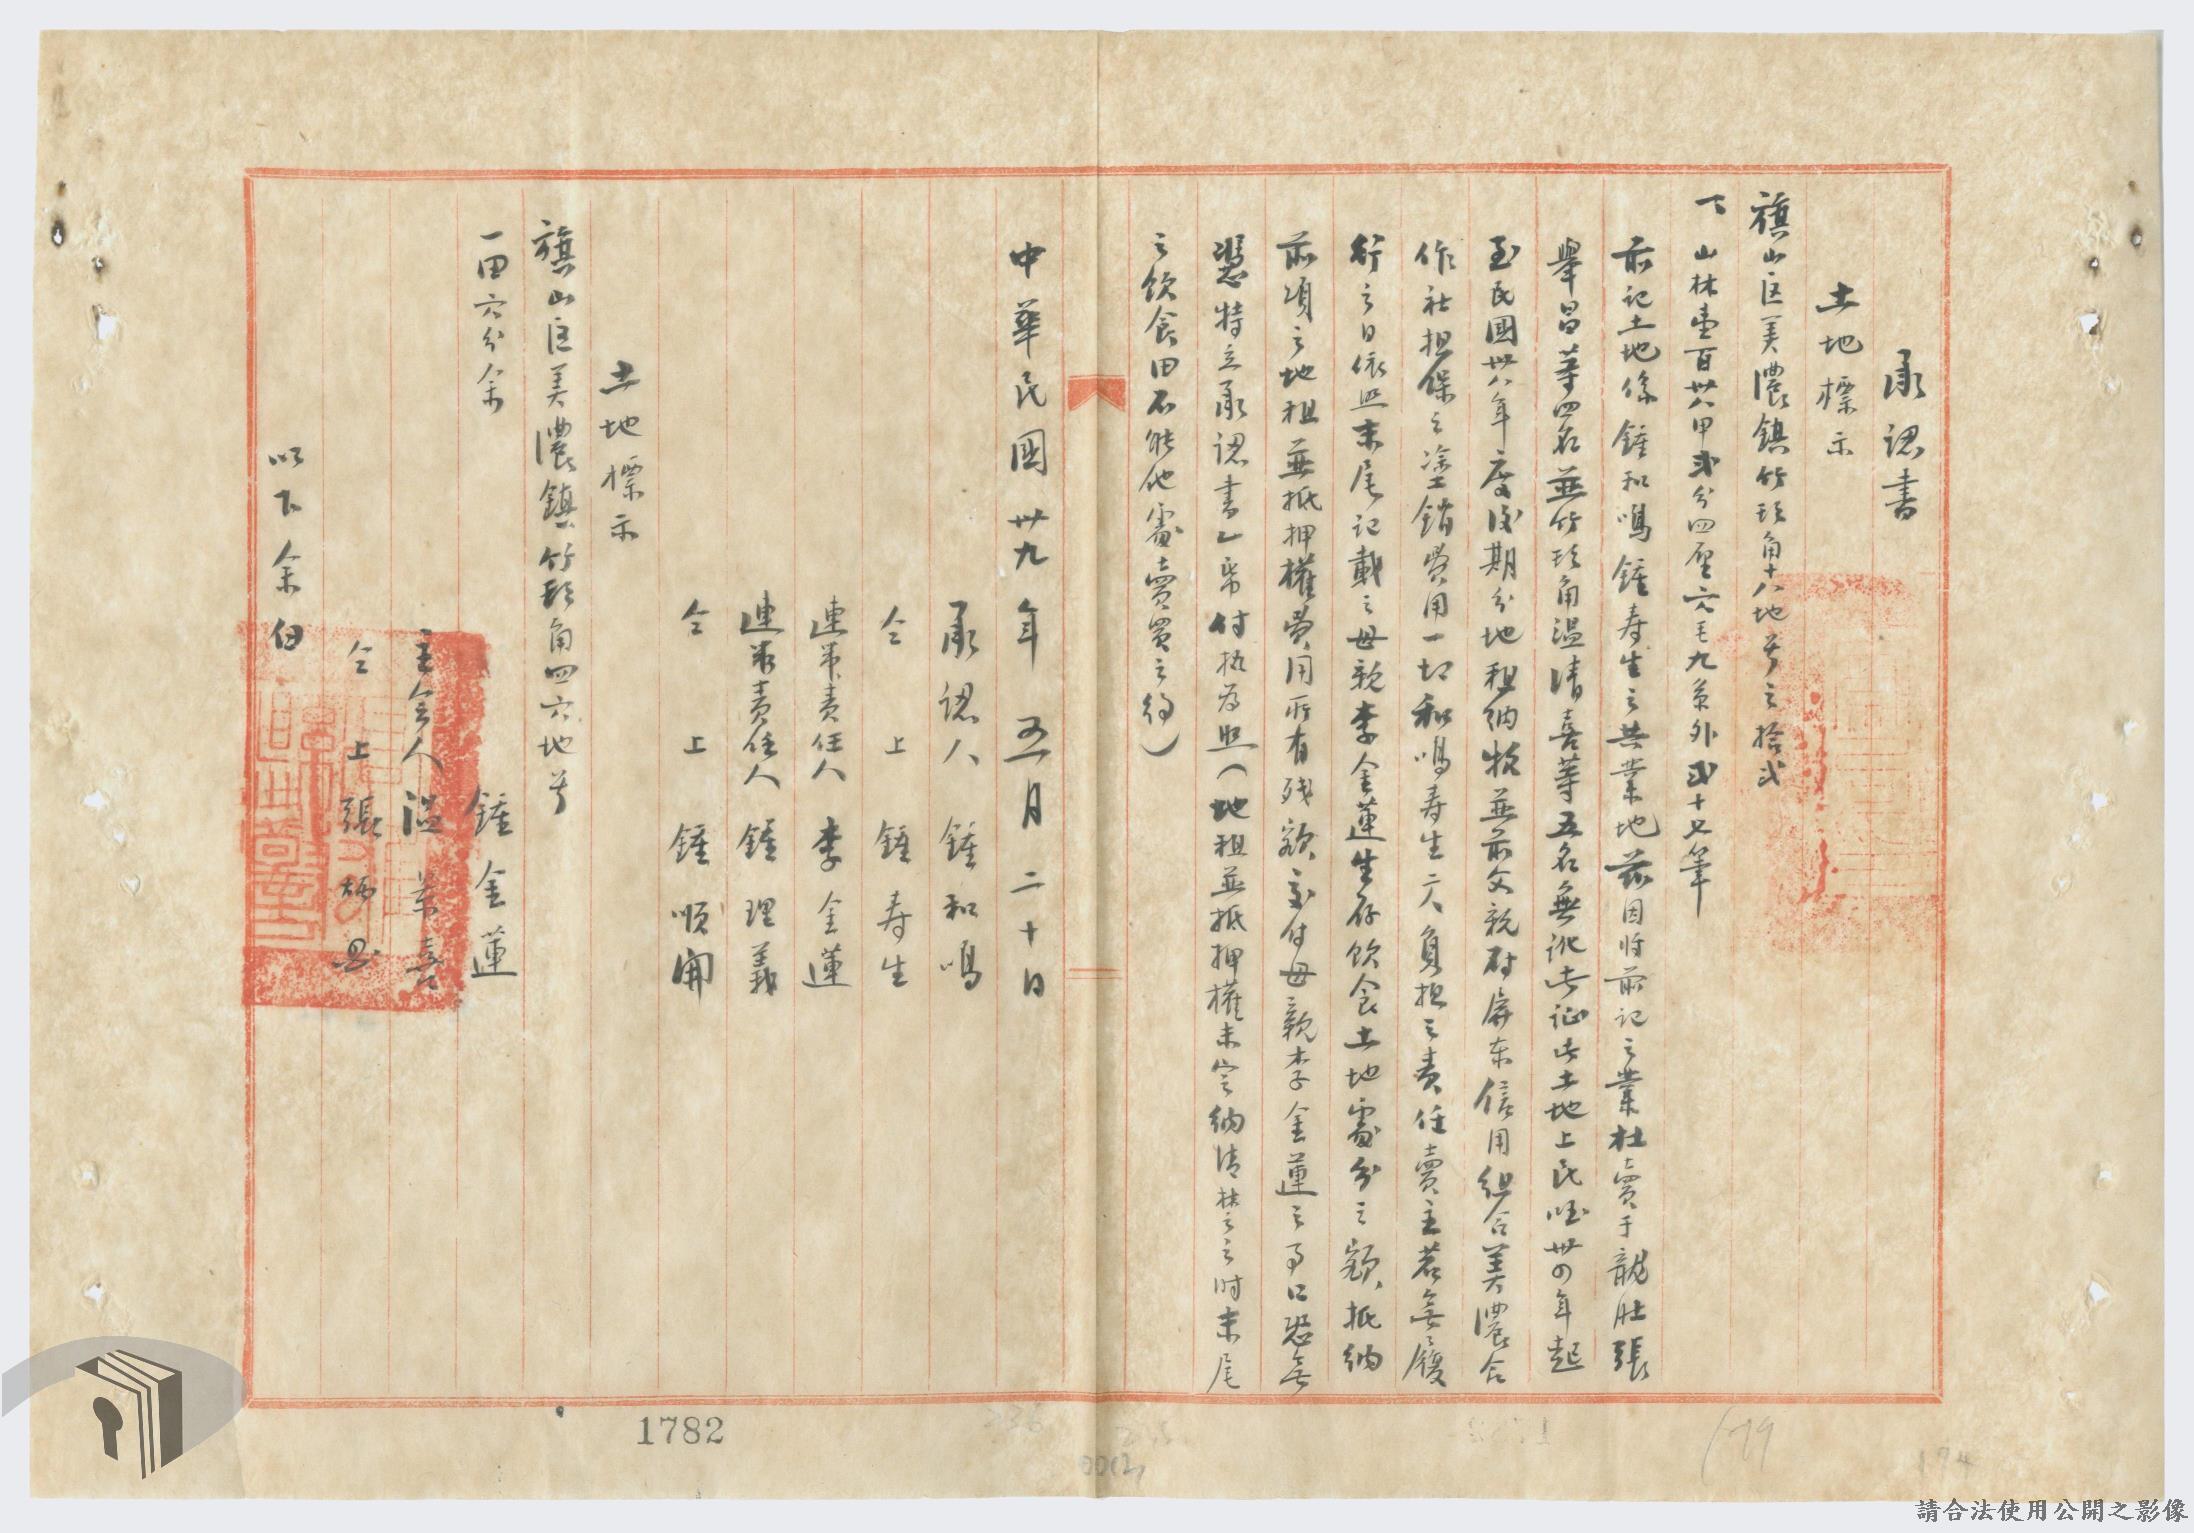 承認書
土地標示
旗山区美濃鎮竹頭角十八地号之拾弍
一、山林壹百卅八甲弍分四厘六毛九糸外弍十七筆
前記土地係鍾和鳴鍾寿生之共業地茲因將前記之業杜賣于龍肚張
舉昌等四名並竹頭角温清喜等五名無訛此証此土地上民國卅四年起
至民國卅八年度後期分地租納於並前父親対屏东信用組合美濃合
作社担保之塗銷費用一切和鳴寿生二人負担之責任賣主若無履
行之日依照末尾記載之母親李金蓮生存飲食土地處分之額抵納
前項之地租並抵押權費用所有残額交付母親李金蓮之手口恐無
憑特立承認書乙帋付执為照（地租並抵押權未完納清楚之时末尾
之飲食田不能他處賣買之約）
中華民國卅九年五月二十日
承認人 鍾和鳴
仝上 鍾寿生
連帯責任人 李金蓮
連帯責任人 鍾理義
仝上 鍾順開
土地標示
旗山区美濃鎮竹頭角四六地号
一田六分余
鍾金蓮
立会人 温 喜
仝上 張
以下余白
1782
179
174
請合法使用公開之影像